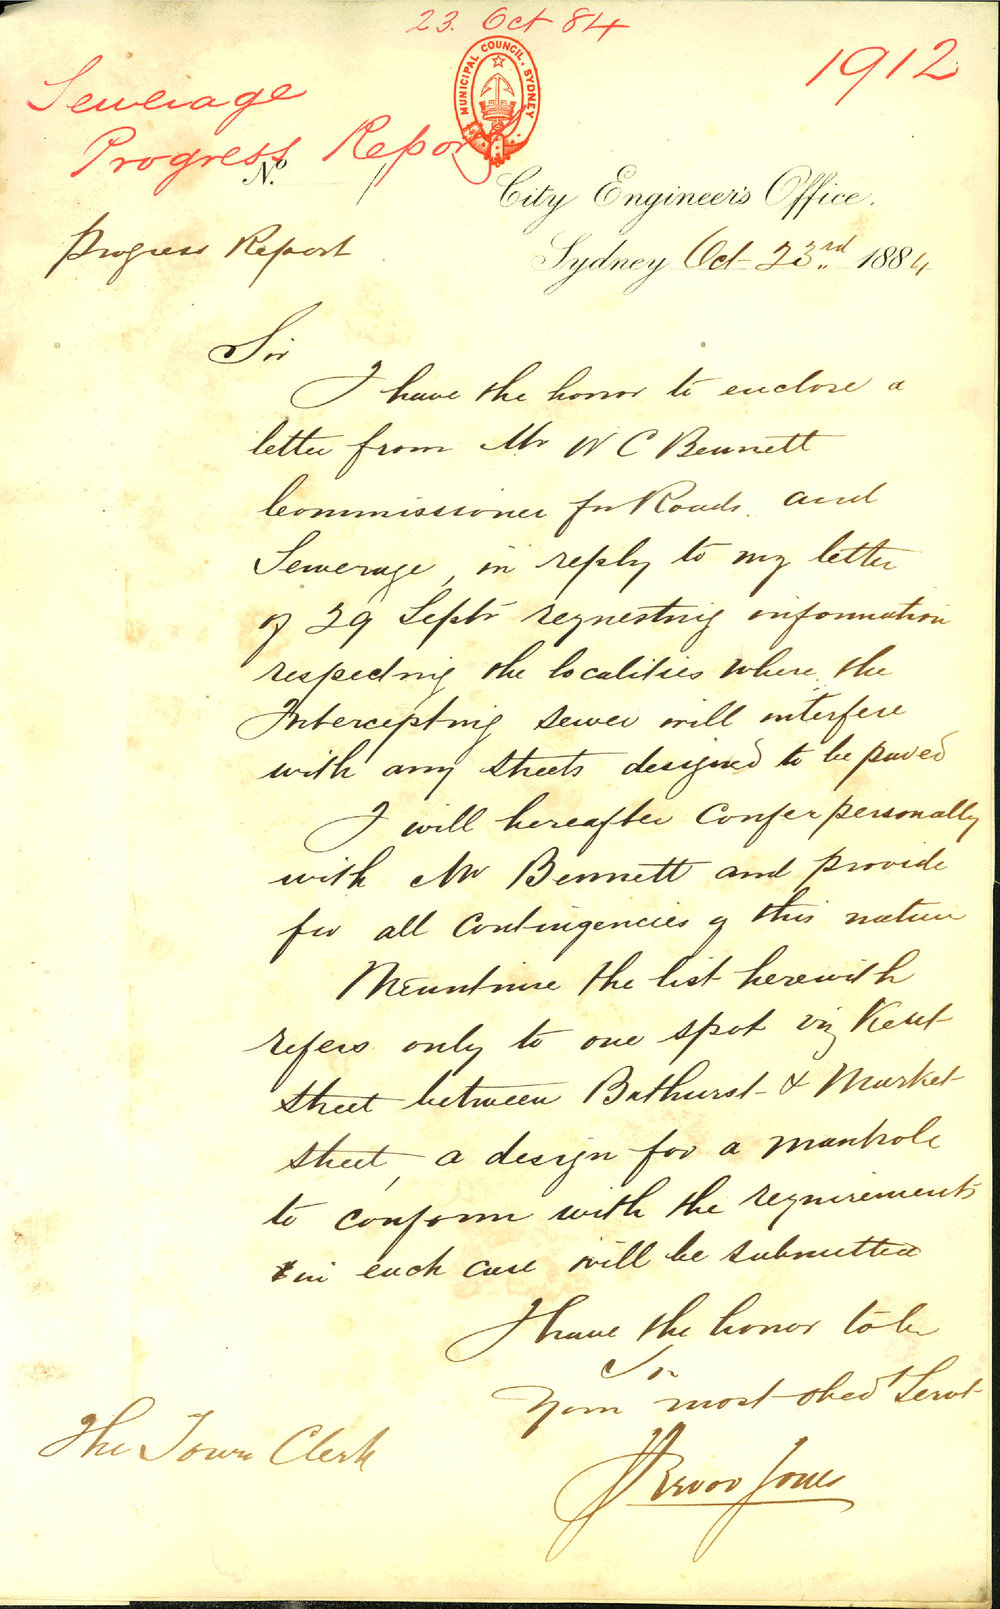 23. Oct 84
1912
MUNICIPAL COUNCIL. SYDNEY
Sewerage
Progress Report
No.
City Engineer's Office.
Progress Report
Sydney Oct 23rd 1884
Sir
I have the honor to enclose a
letter from Mr W C Bennett
Commissioner for Roads. and
Sewerage, in reply to my letter
of 29 Septr requesting information
respecting the localities where the
Intercepting sewer will interfere
with any streets designed to be paved
I will hereafter confer personally
with Mr Bennett and provide
for all contingencies of this nature
Meantime the list herewith
refers only to one spot viz Kent
street between Bathurst & Market
street, a design for a manhole
to conform with the requirements
in each case will be submitted
I have the honor to be
Sir
Your most obedt Servt
Trevor Jones
The Town Clerk